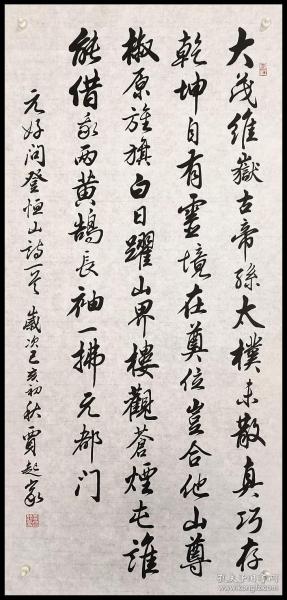 大茂維嶽古帝孫太樸未散真巧存
乾坤自有靈境在奠位豈合他山尊
椒原旌旗白日躍山界樓觀蒼煙屯誰
能借我兩黃鵠長袖一拂元都门
元好问登恒山詩一首 歲次己亥初秋 賈起家